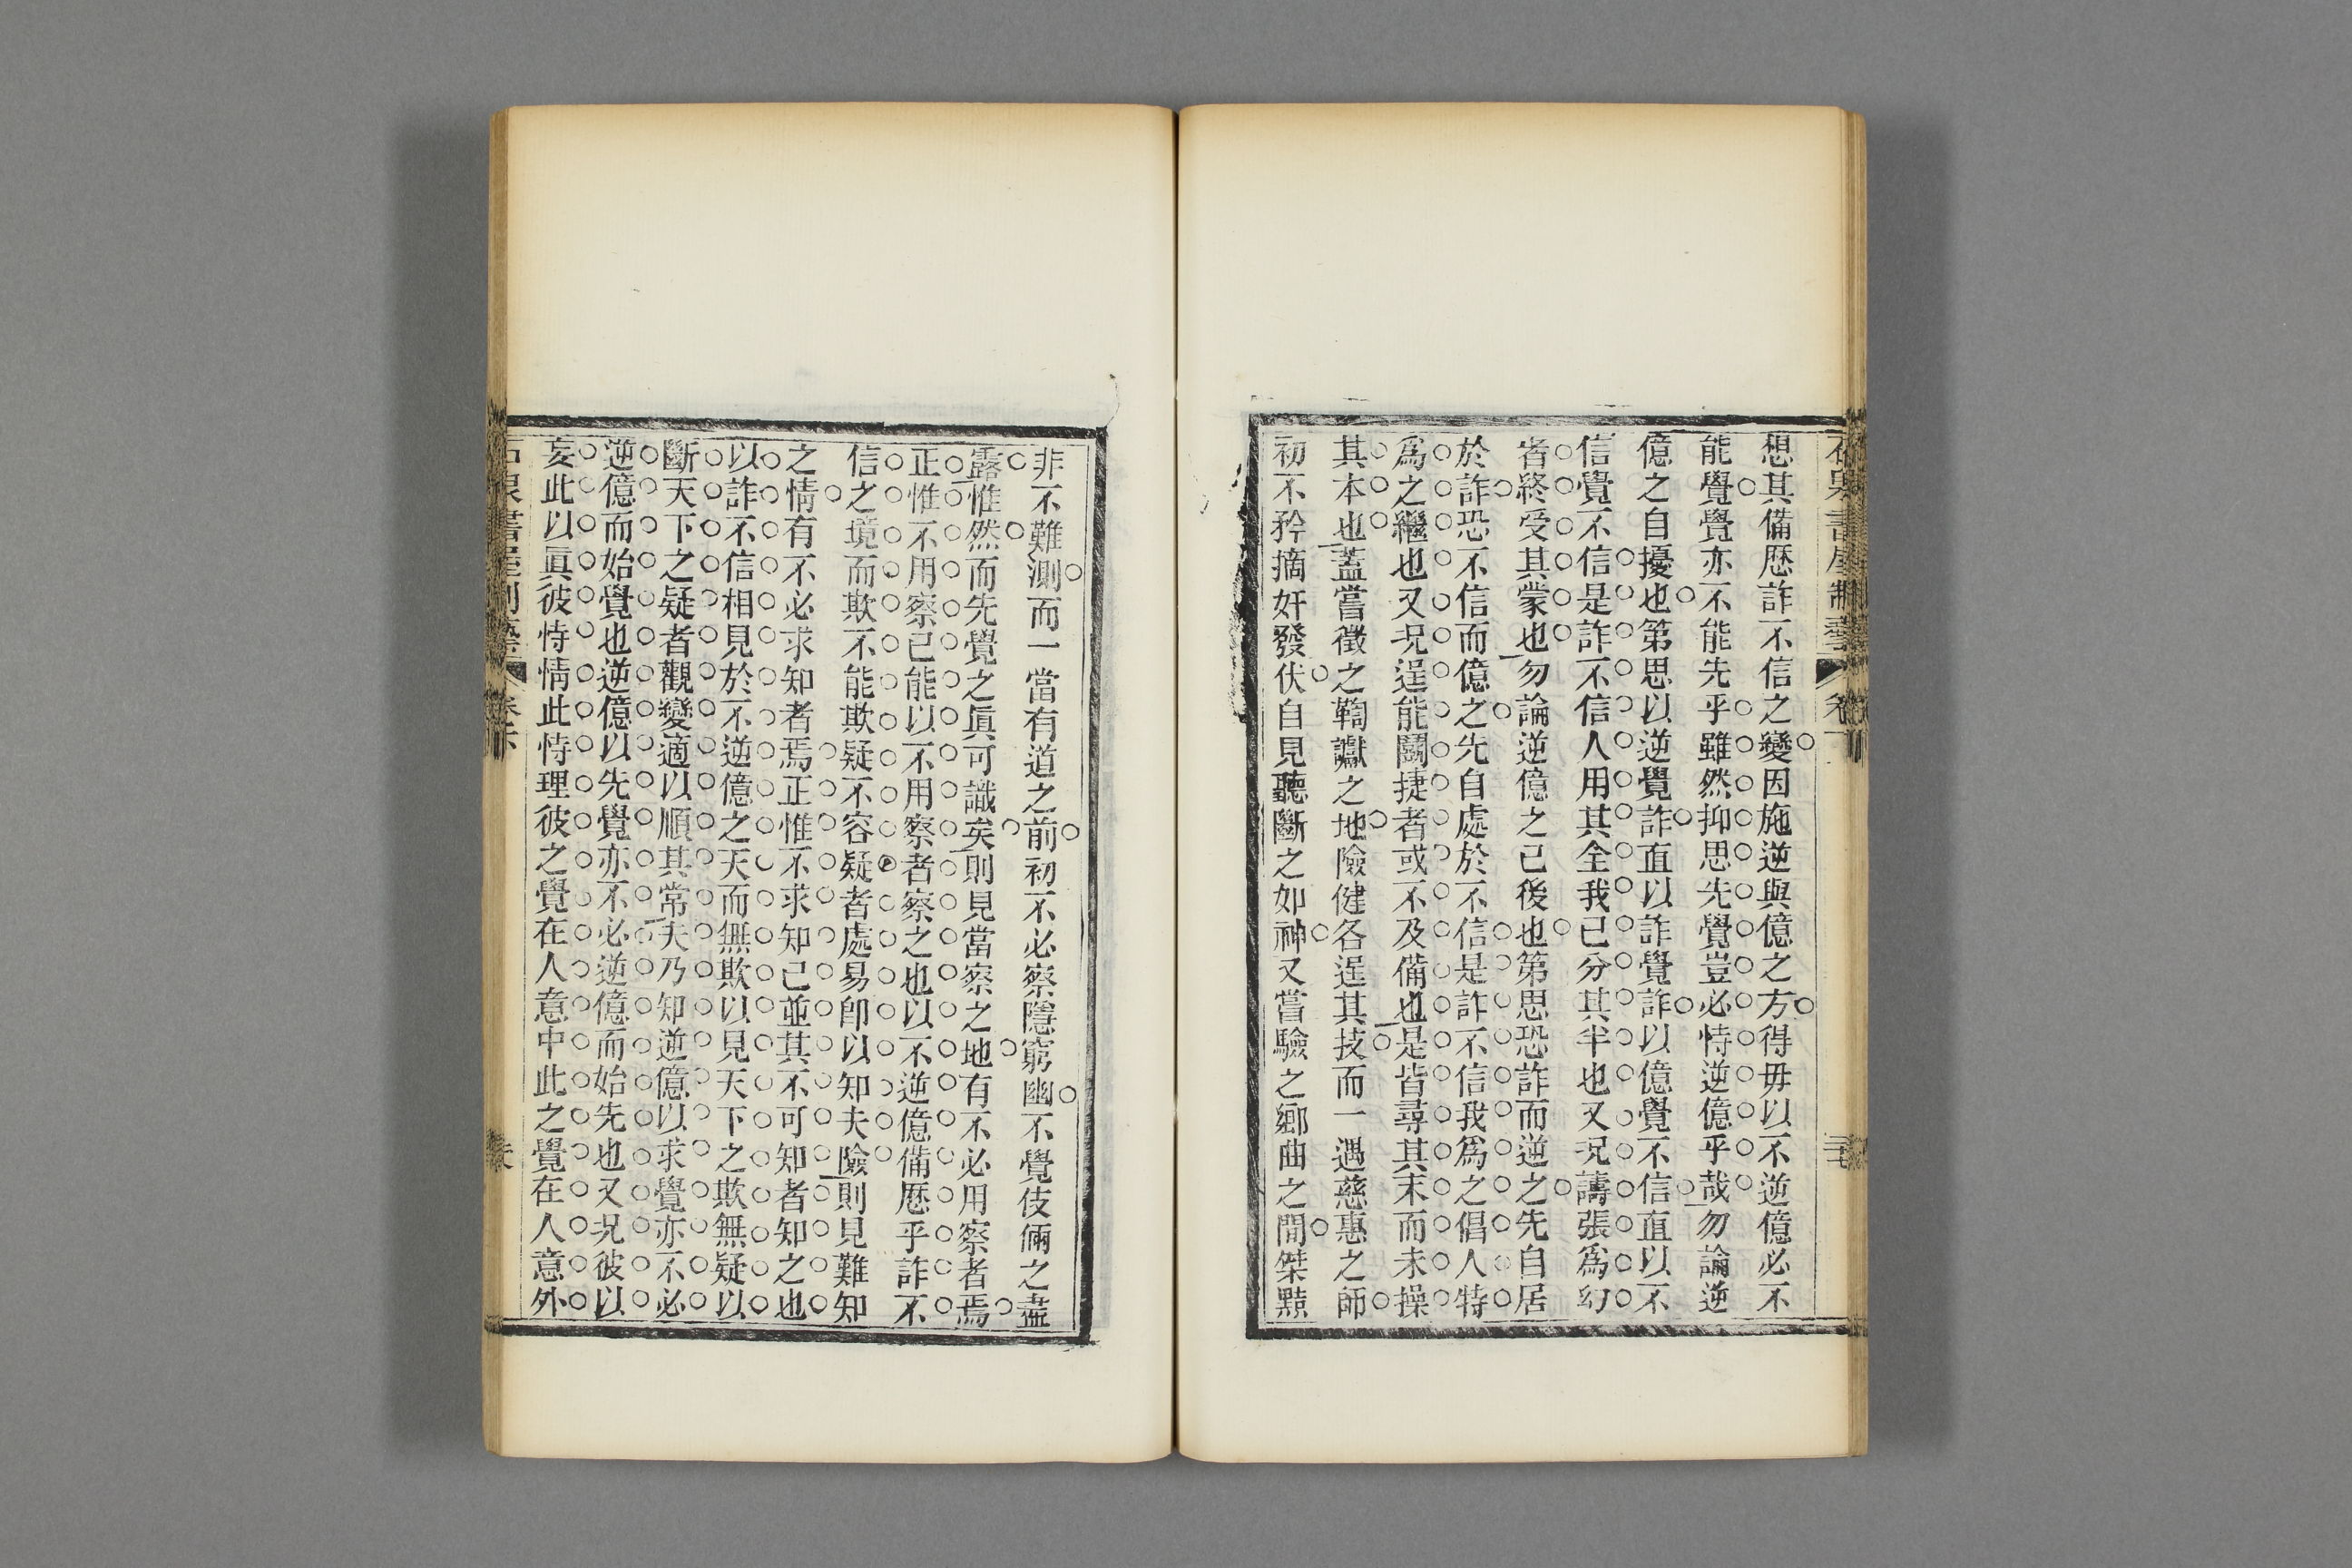 想其備歷詐不信之變因施逆與億之方得毋以不逆億必不
能覺覺亦不能先乎雖然抑思先覺豈必恃逆億乎哉勿論逆
億之自擾也第思以逆覺詐直以詐覺詐以億覺不信直以不
信覺不信是詐不信人用其全我已分其半也又況譸張爲幻
者終受其蒙也勿論逆億之已後也第思恐詐而逆之先自居
於詐恐不信而億之先自處於不信是詐不信我爲之倡人特
爲之繼也又況逞能鬬捷者或不及備也是皆尋其末而未操
其本也蓋嘗徵之鞫讞之地險健各逞其技而一遇慈惠之師
初不矜摘奸發伏自見聽斷之如神又嘗驗之鄉曲之間桀黠
非不難測而一當有道之前初不必察隱窮幽不覺伎倆之盡
露惟然而先覺之眞可識矣則見當察之地有不必用察者焉
正惟不用察已能以不用察者察之也以不逆億備歷乎詐不
信之境而欺不能欺疑不容疑者處易卽以知夫險則見難知
之情有不必求知者焉正惟不求知己並其不可知者知之也
以詐不信相見於不逆億之天而無欺以見天下之欺無疑以
斷天下之疑者觀變適以順其常夫乃知逆億以求覺亦不必
逆億而始覺也逆億以先覺亦不必逆億而始先也又況彼以
妄此以眞彼恃情此恃理彼之覺在人意中此之覺在人意外